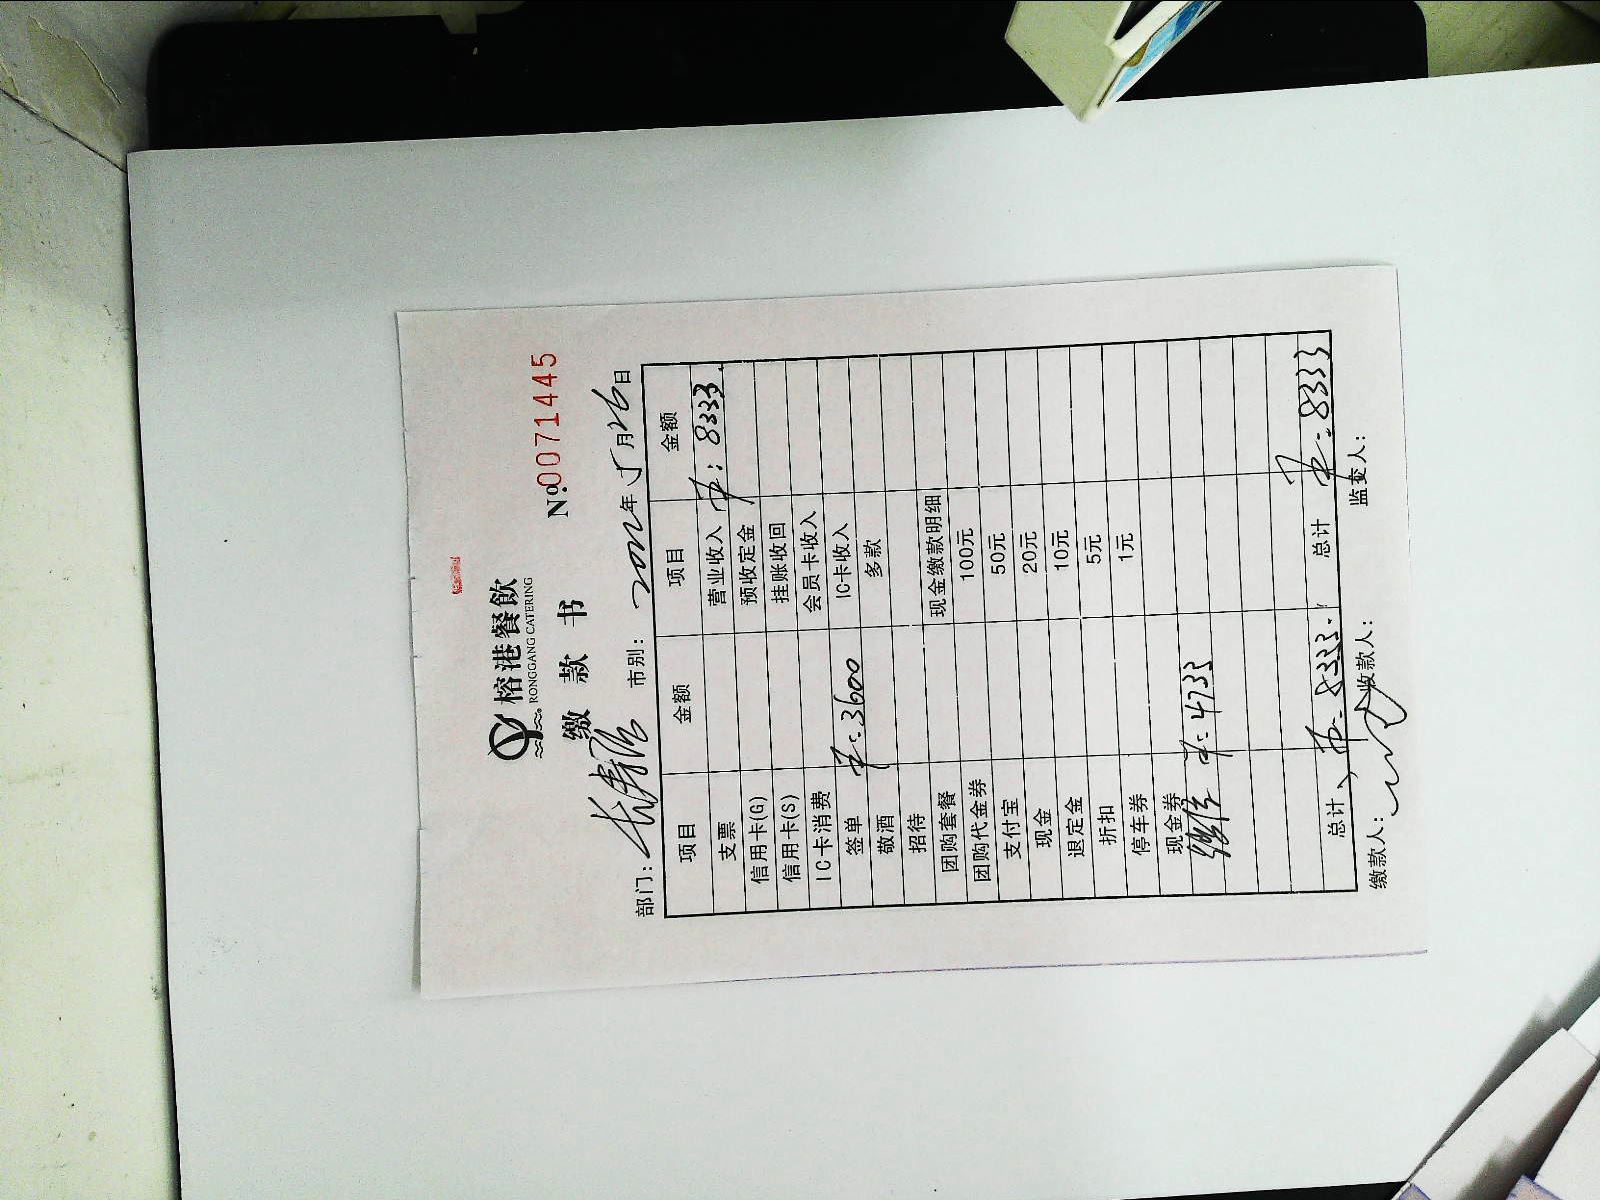 榕港餐飲
RONGGANG CATERING
缴 款 书
Nº.0071445
部门: 市别: 2022年5月26日
项目 金额 项目 金额
支票 营业收入 8333
信用卡(G) 预收定金
信用卡(S) 挂账收回
IC卡消费 会员卡收入
签单 3600 IC卡收入
敬酒 多款
招待
团购套餐 现金缴款明细
团购代金券 100元
支付宝 50元
现金 20元
退定金 10元
折扣 5元
停车券 1元
现金券
4733
总计 8333 总计 8333
缴款人: 收款人: 监交人: